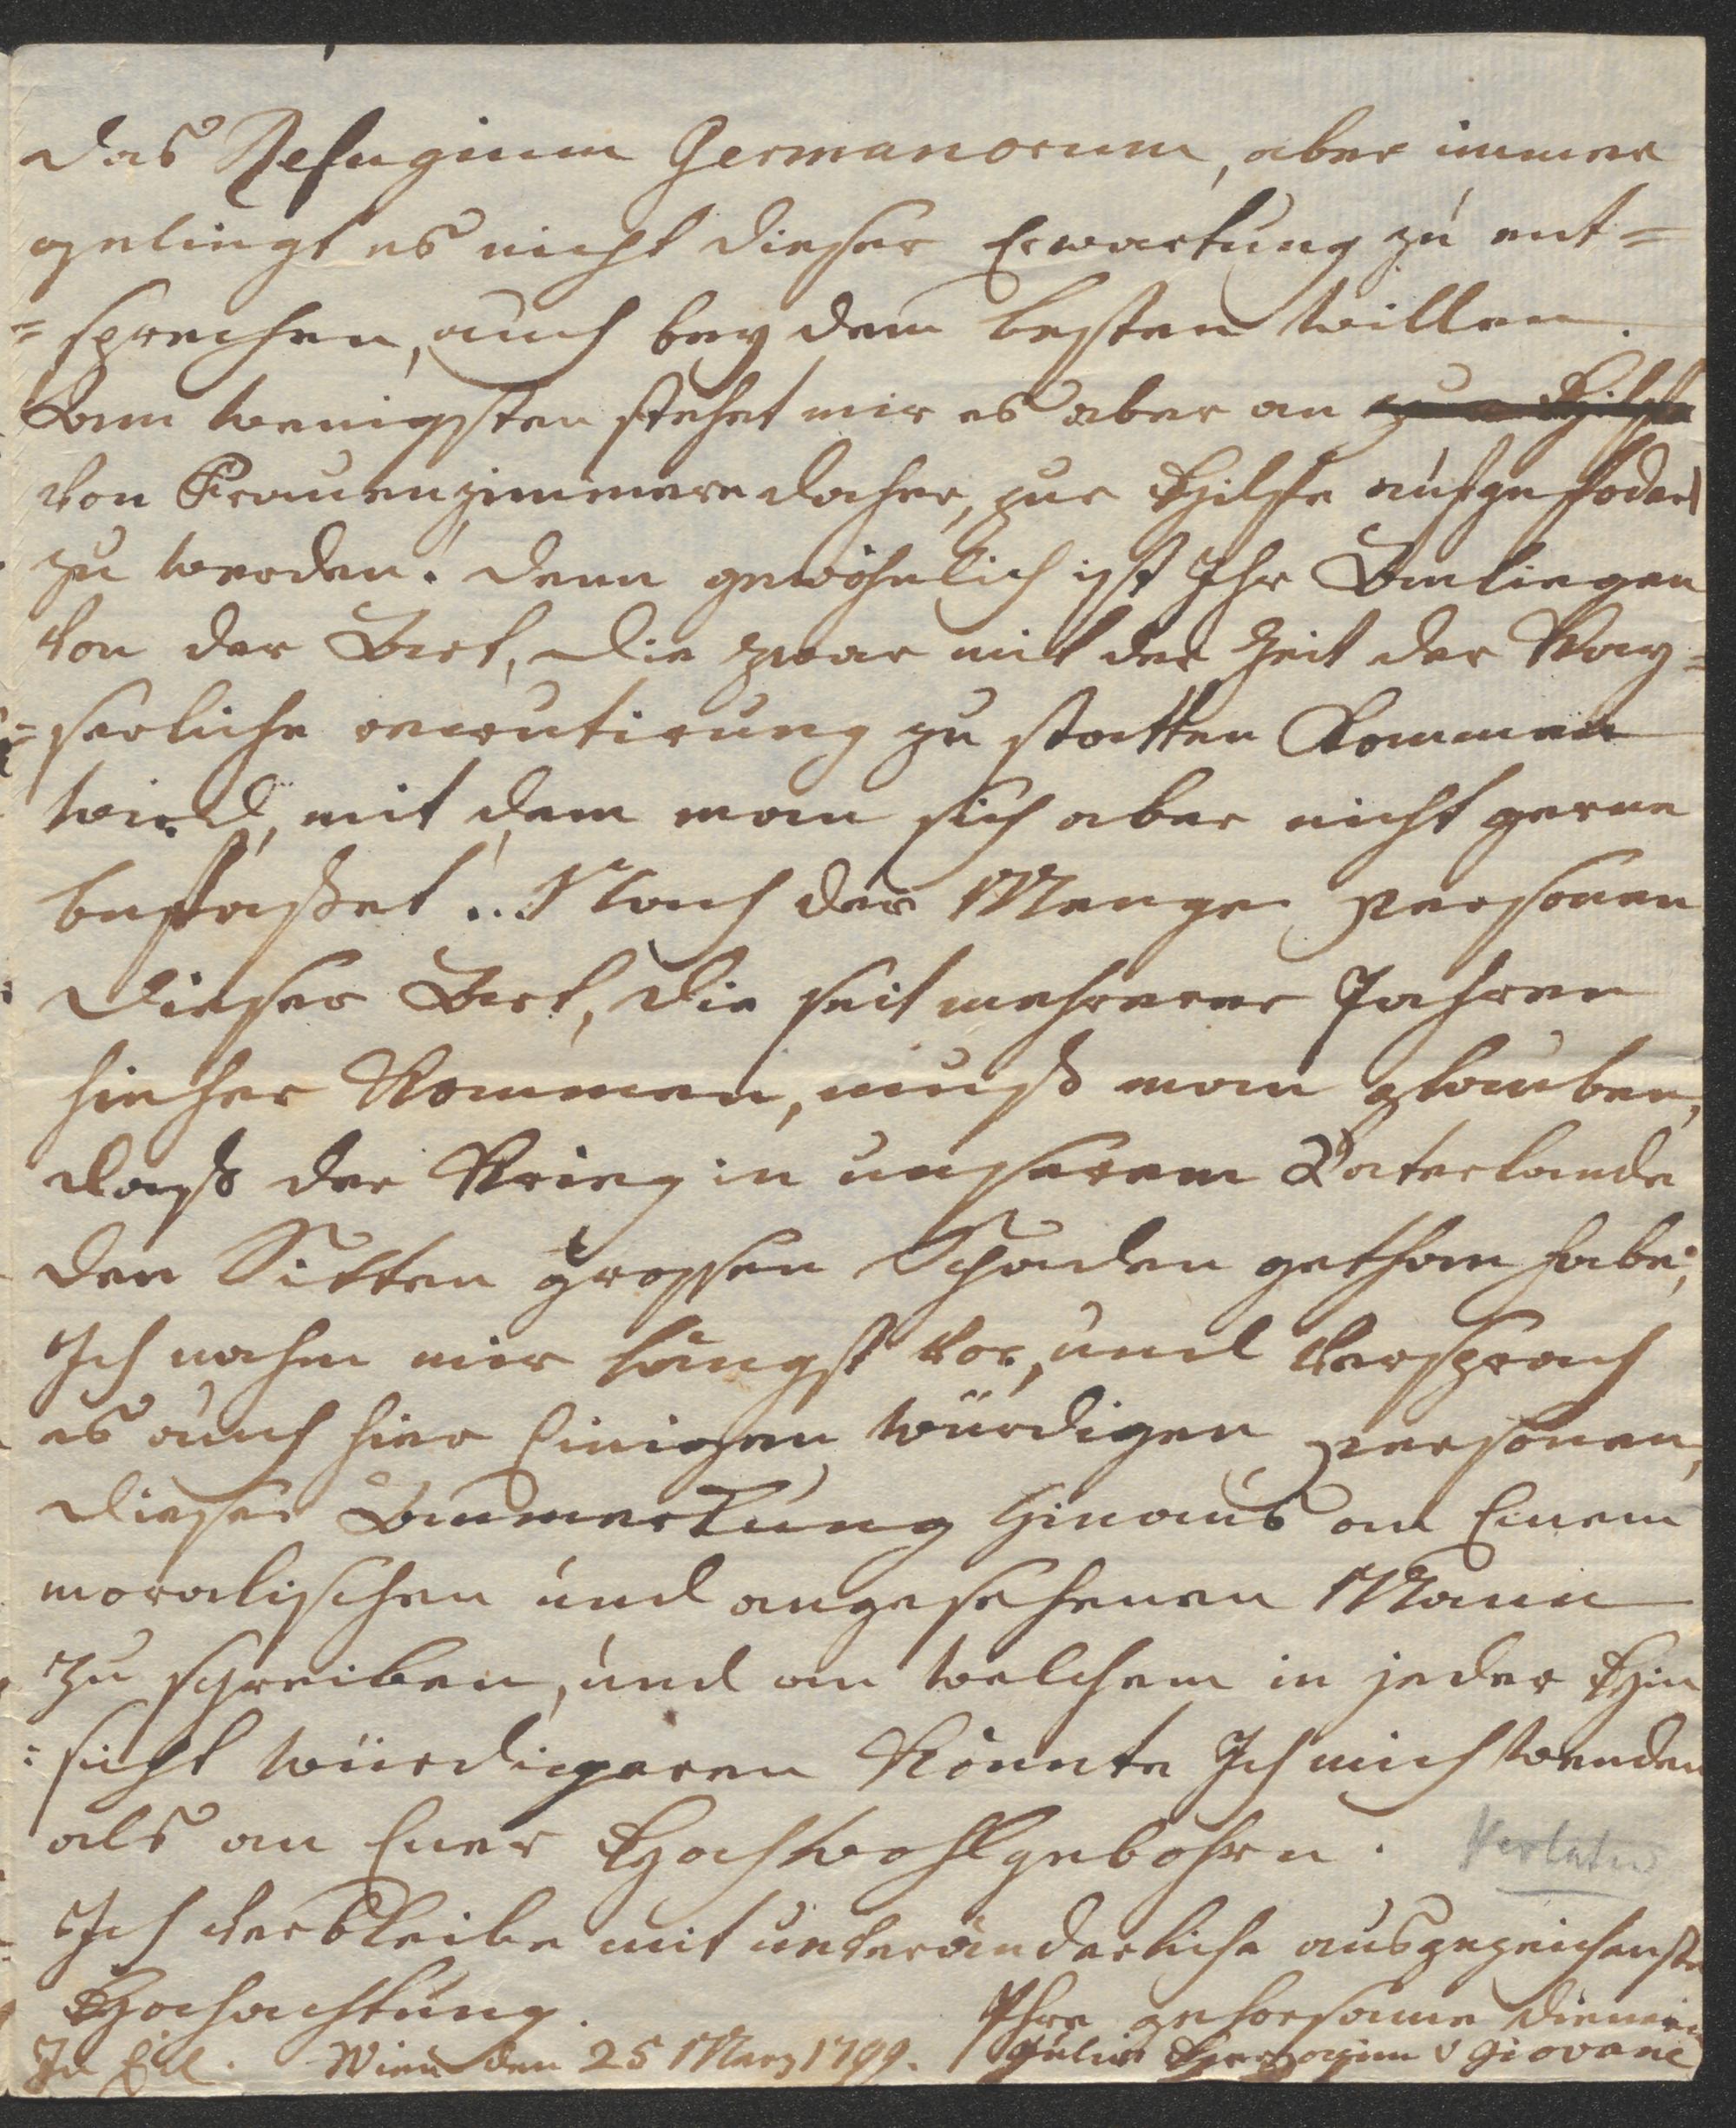 das Refugium Germanorum, aber immer
gelingt es nicht dieser Erwartung zu ent=
=sprechen, auch bey dem besten Willen.
Am wenigsten stehet mir es aber an zur Hilfe
von Frauenzimmern daher, zur Hilfe aufgefodert
zu werden. denn gewöhnlich ist Ihr Anliegen
von der Art, die zwar mit der Zeit der Kay=
=serliche recrutirung zu statten Kommen
wird, mit dem man sich aber nicht gerne
befasset.. Nach der Menge personen
dieser Art, die seit mehrerer Jahren
hieher Kommen, muß man glauben,
daß der Krieg in unserem Vaterlande
den Sitten grossen Schaden gethan habe;
Ich nahm mir längst vor, und versprach
es auch hier Einigen würdigen personen,
dieser Anmerkung hinaus an Einem
moralischen und angesehenen Mann
zu schreiben, und an welchem in jeder Hin
=sicht würdigeren Könnte Ich mich wenden
als an Euer Hochwohlgebohrn.
Ich verbleibe mit unveränderliche ausgezeichenste
Hochachtung. Ihre gehorsame dienerin
In Eil. Wien den 25 Marz 1799. Julie Herzogin v Giovane